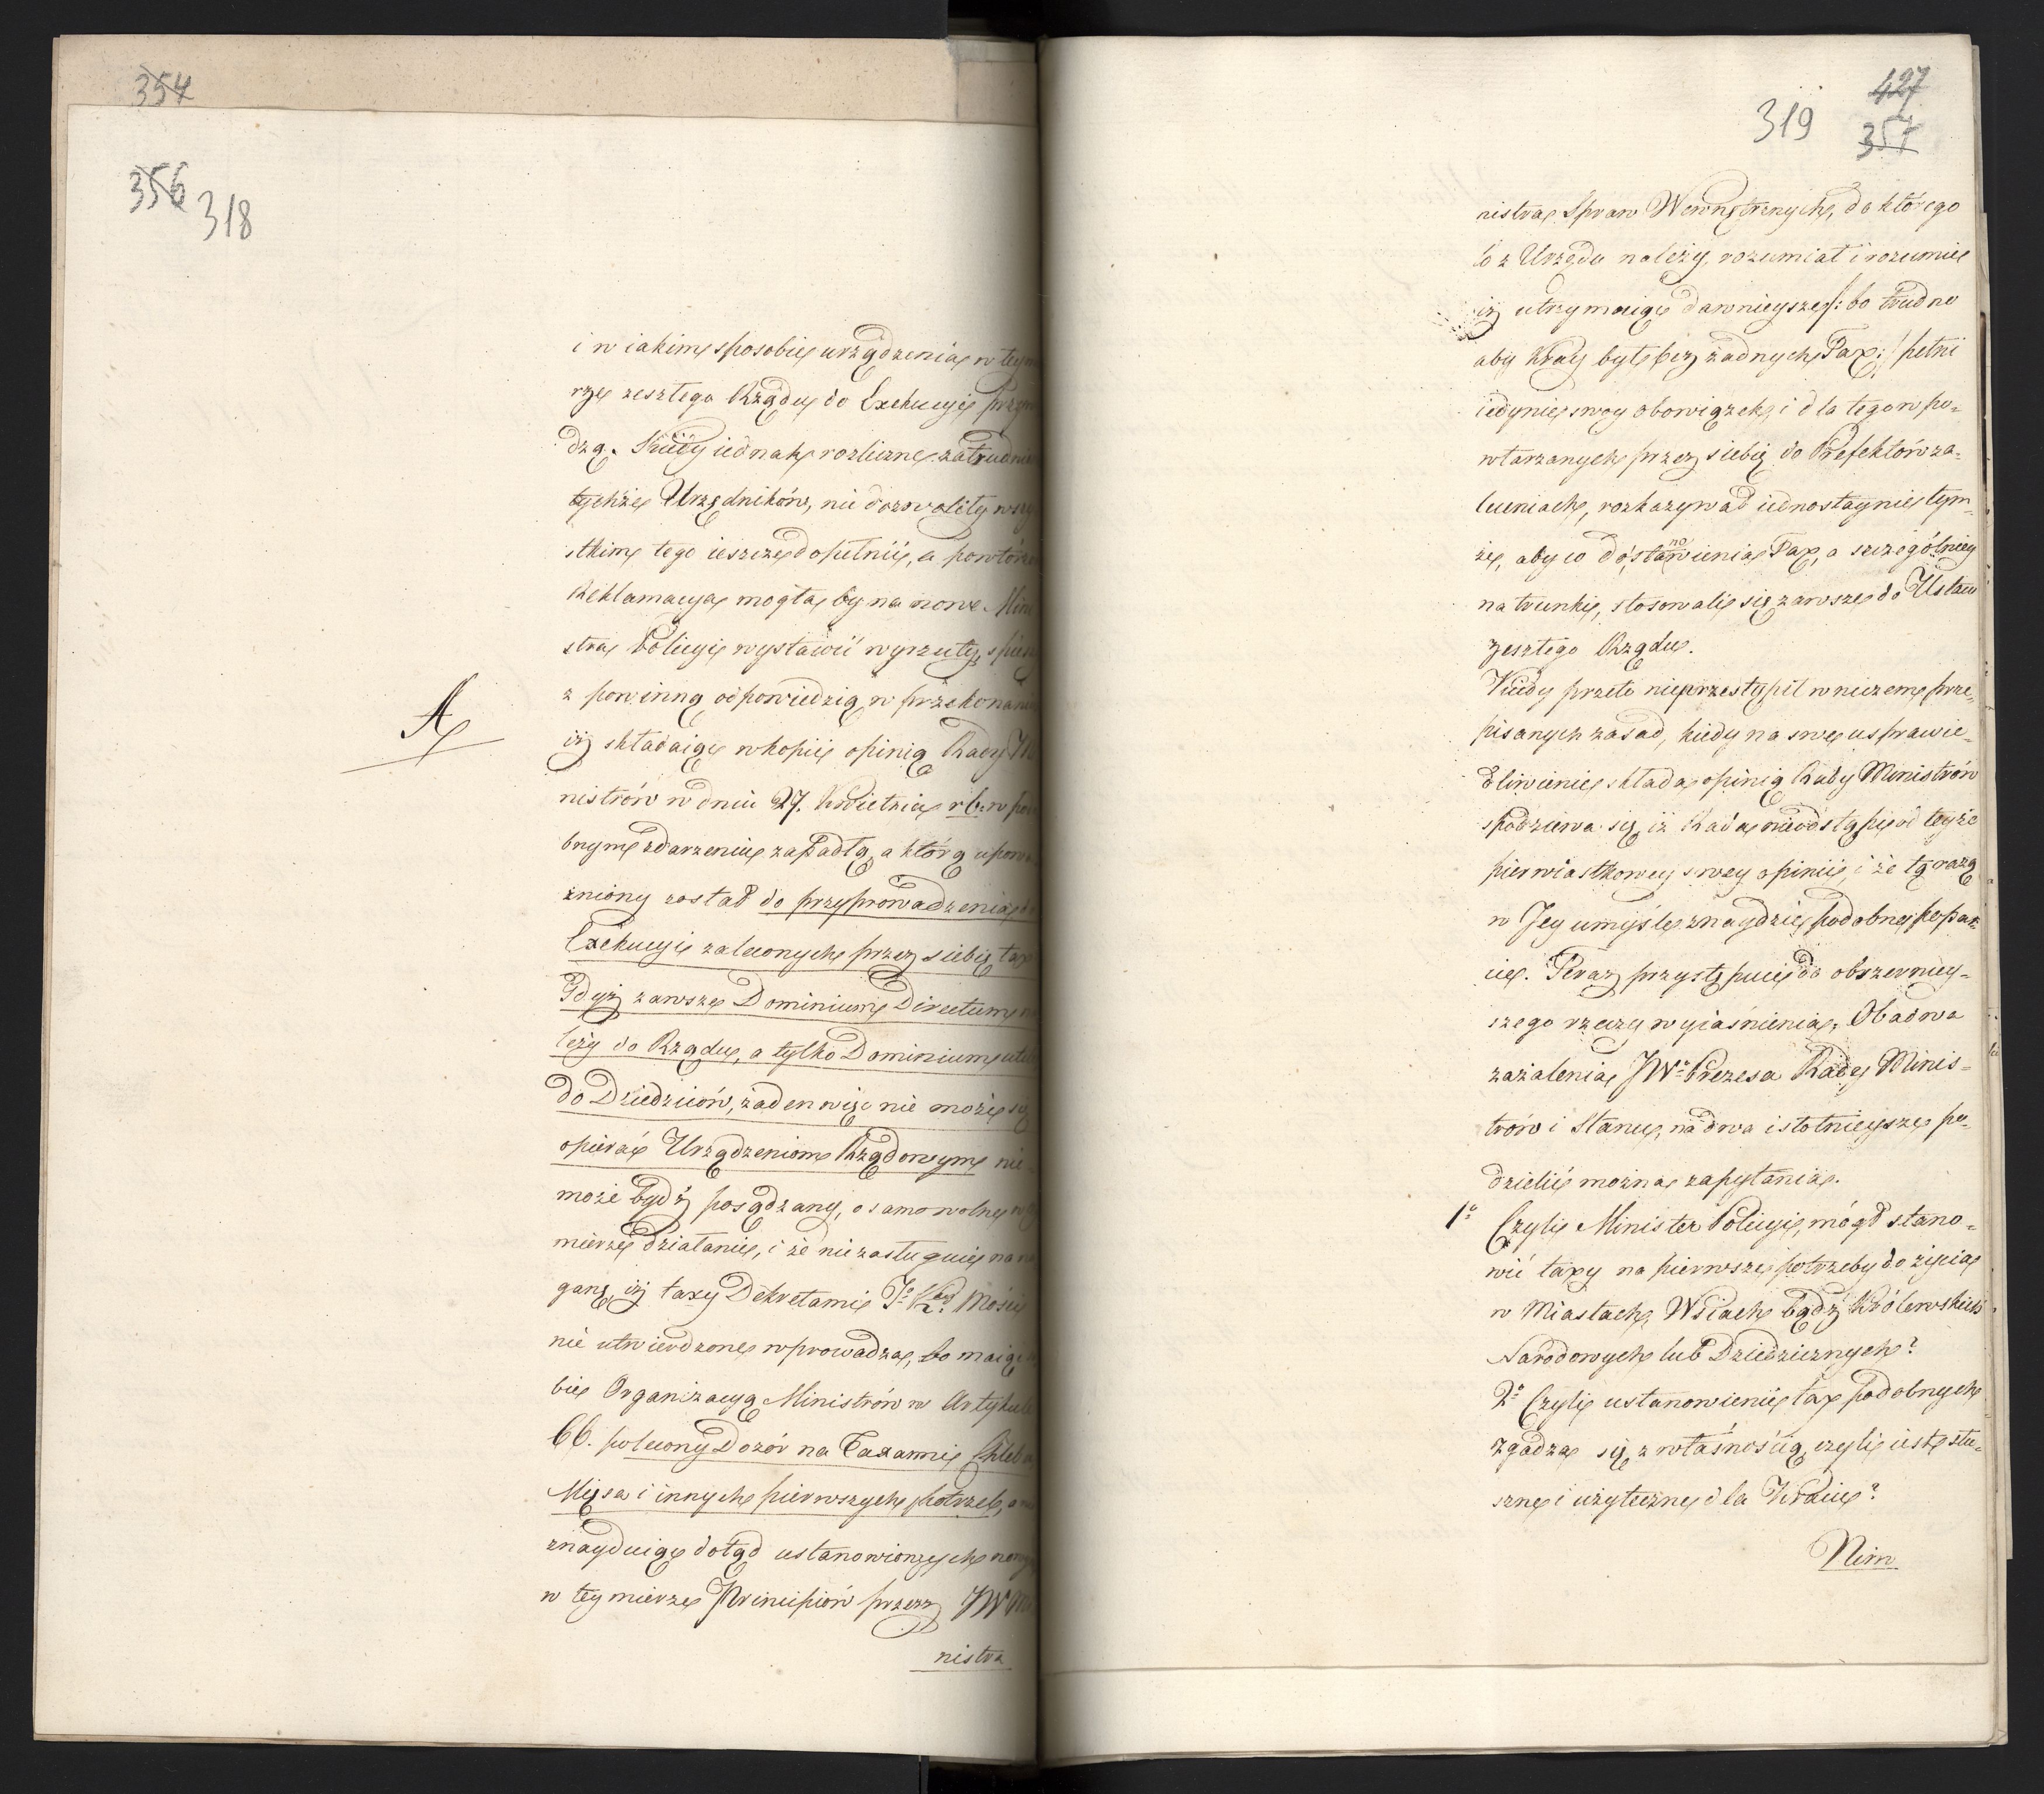 354
356 318
i w iakim sposobie urządzenia w tey
rze zeszłego Rządu do Exekucyi
dzą. Kiedy iednak rozliczne zatrudnie
tychże Urzędników, nie dozwoliły wszy
stkim tego ieszcze dopełnić, a powtórzo
Reklamacya mogła by na nowe Mini
stra Policyi wystawić wyrzuty, spiesz
z powinną odpowiedzią, w przekonaniu
A
iż składaiąc w kopii opinią Rady Mi
nistrów w dniu 27. Kwietnia r. b. w podo
bnym zdarzeniu zapadłą, a którą upowa
żniony został do przyprowadzenia do
Exekucyi zaleconych przez siebie tax
Gdyż zawsze Dominium Directum na
leży do Rządu, a tylko Dominium utile
do Dziedziców, żaden więc nie może się
opierać Urządzeniom Rządowym nie
może bydź posądzany, o samowolne w
mierze działanie, i że nie zasługuie na na
ganę, iż taxy Dekretami J: Kr: Mości
nie utwierdzone wprowadza, bo maiąc so
bie Organizacyą Ministrów w Artykule
66. polecony Dozór nad Taxami Chleba
Mięsa i innych pierwszych potrzeb, a nie
znayduiąc dotąd ustanowionych nowych
w tey mierze Principiów przez JW Mi
nistra
427
319 357
nistra Spraw Wewnętrznych, do którego
to z Urzędu należy, rozumiał i rozumie
iż utrzymuiąc dawnieysze /: bo trudno
aby Kray był bez żadnych Tax :/ pełni
iedynie swoy obowiązek, i dla tego w po-
wtarzanych przez siebie do Prefektów za-
leceniach, rozkazywał iednostaynie tym-
że, aby co do stanowienia Tax, a szczególniey
na trunki, stosowali się zawsze do Ustaw
zeszłego Rządu.
Kiedy przeto nieprzestąpił w niczem prze-
pisanych zasad, kiedy na swe usprawie-
dliwienie składa opinią Rady Ministrów
spodziewa się, iż Rada nieodstąpi od teyże
pierwiastkowey swey opinii, i że tą razą
w Jey umyśle znaydzie podobne popar-
cie. Teraz przystępuię do obszerniey-
szego rzeczy wyiaśnienia. Obadwa
zażalenia JWo Prezesa Rady Minis-
trów i Stanu, na dwa istotnieysze po-
dzielić można zapytania.
1o Czyli Minister Policyi, mógł stano-
wić taxy na pierwsze potrzeby do życia
w Miastach, Wsiach bądź Królewskich
Narodowych lub Dziedzicznych?
2o Czyli ustanowienie tax podobnych
zgadza się z własnością, czyli iest słu-
szne i użyteczne dla Kraiu?
Nim